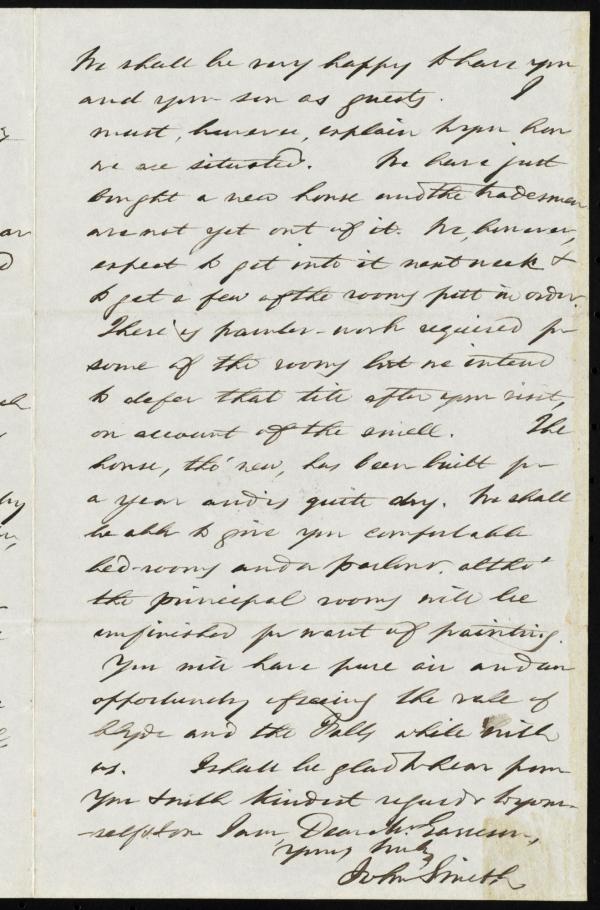 We shall be very happy to have you
and your son as guests. I
must, however, explain to you how
we are situated. We have just
bought a new house and the tradesmen
are not yet out of it. We, however,
expect to get into it next week &
to get a few of the rooms putt in order.
There is painter-work required for
some of the rooms but we intend
to defer that till after your visit,
on account of the smell. The
house, tho' new, has been built for
a year and is quite dry. We shall
be able to give you comfortable
bed-rooms and a parlour. altho'
the principal rooms will be
unfinished for want of painting.
You will have pure air and an
opportunity of seeing the vale of
Clyde and the Falls while with
us. I shall be glad to hear from
you & with kindest regards to your-
-self & son I am, Dear Mr. Garrison,
Yours truly
John Smith